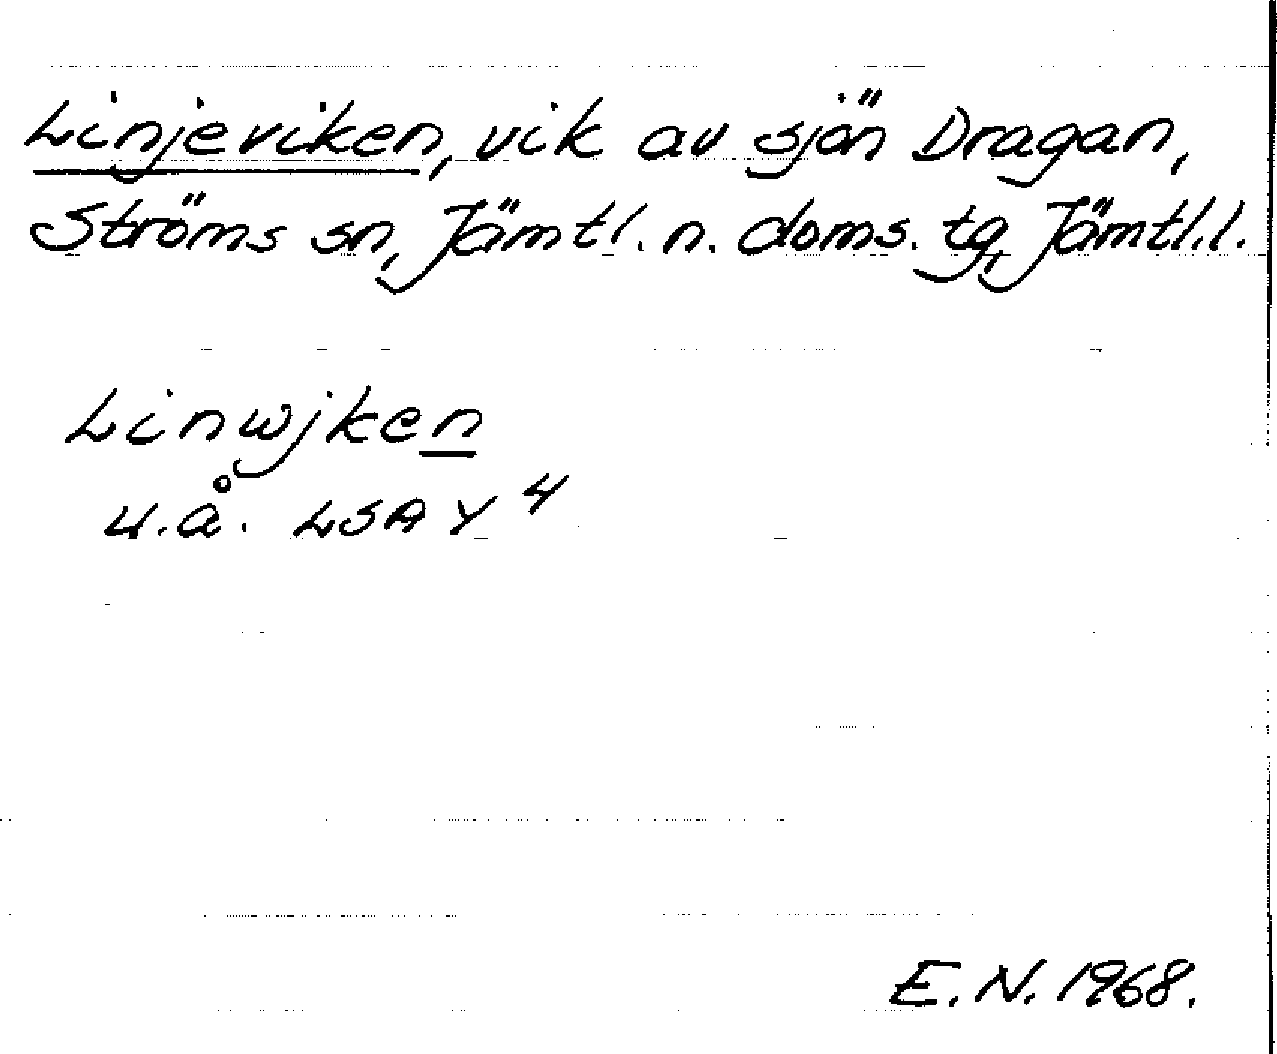 Linjeviken, vik av sjön Dragan,
Ströms sn, Jämtl. n. doms. tg, Jämtl.l.
Linwjken
u.å. LSA Y 4
E. N. 1968.